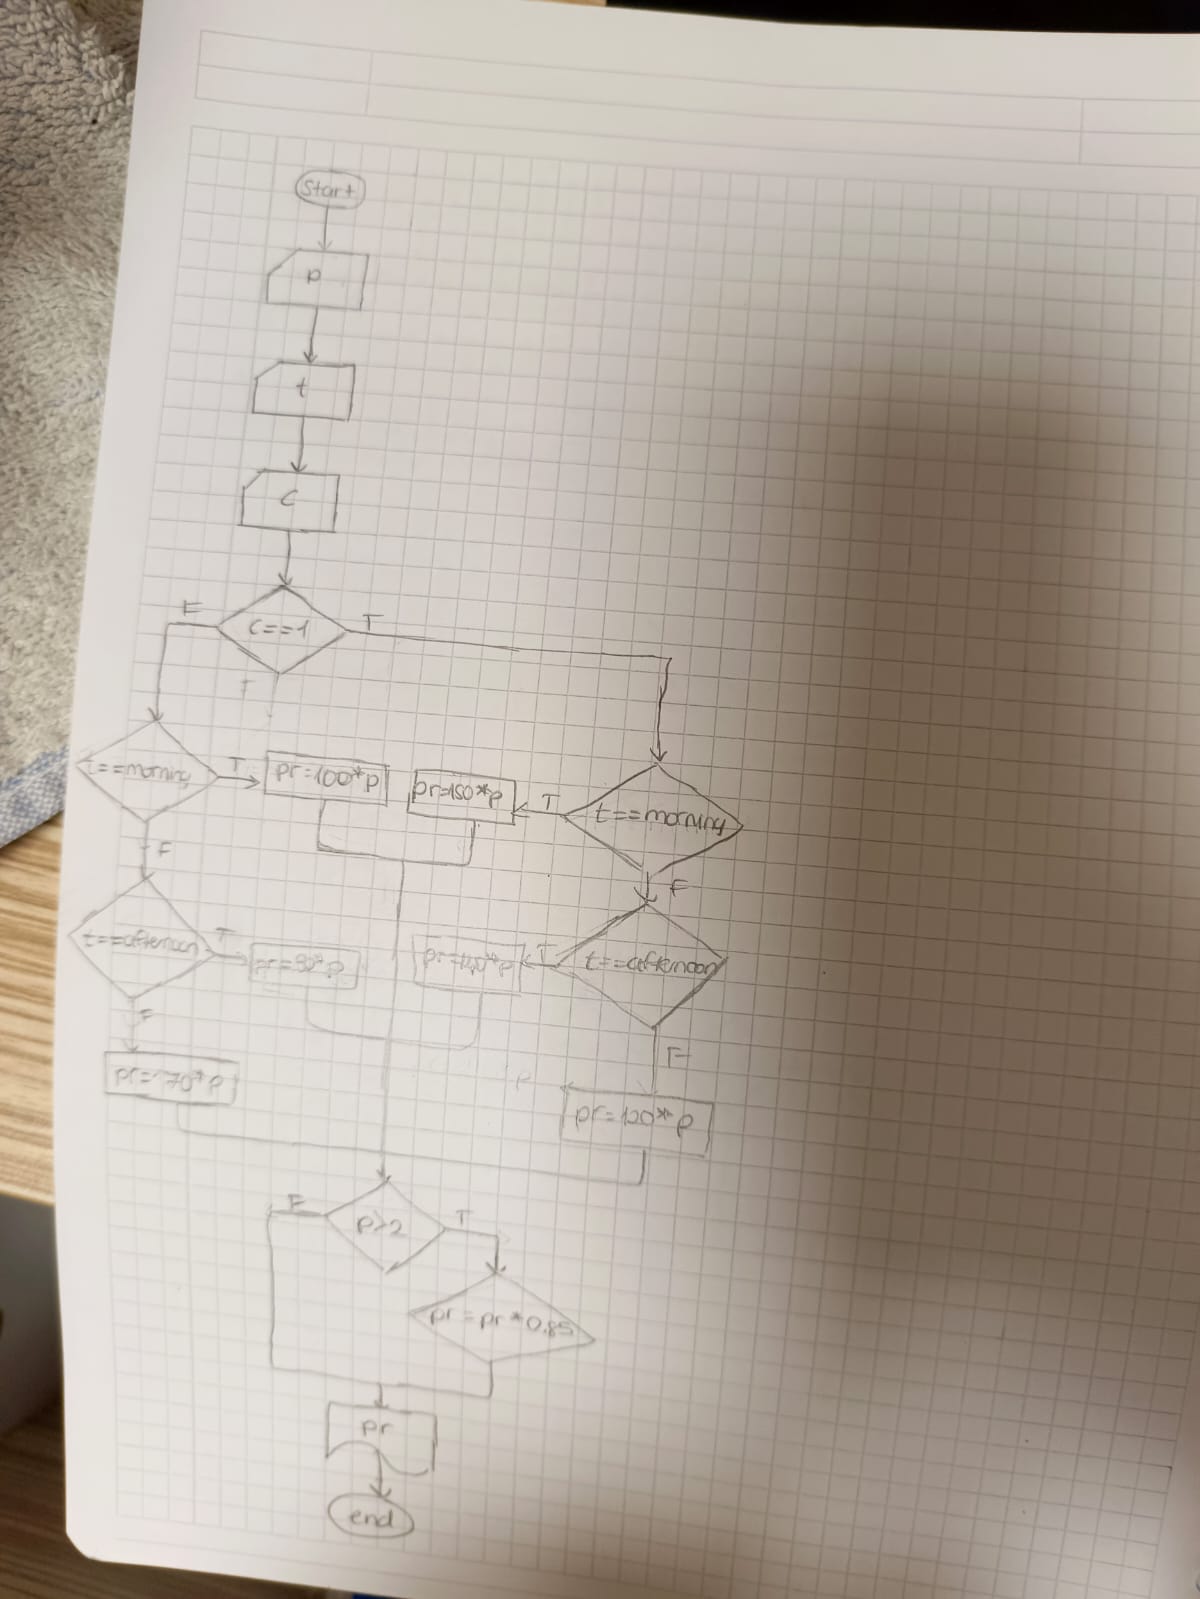 Start
p
t
c
c==1
F
T
F
t==morning
T
pr=100*p
pr=150*p
T
t==morning
F
F
t==afternoon
T
pr=90*p
T
t==afternoon
F
F
pr=70*p
pr=120*p
F
p>2
T
pr=pr*0.85
pr
end